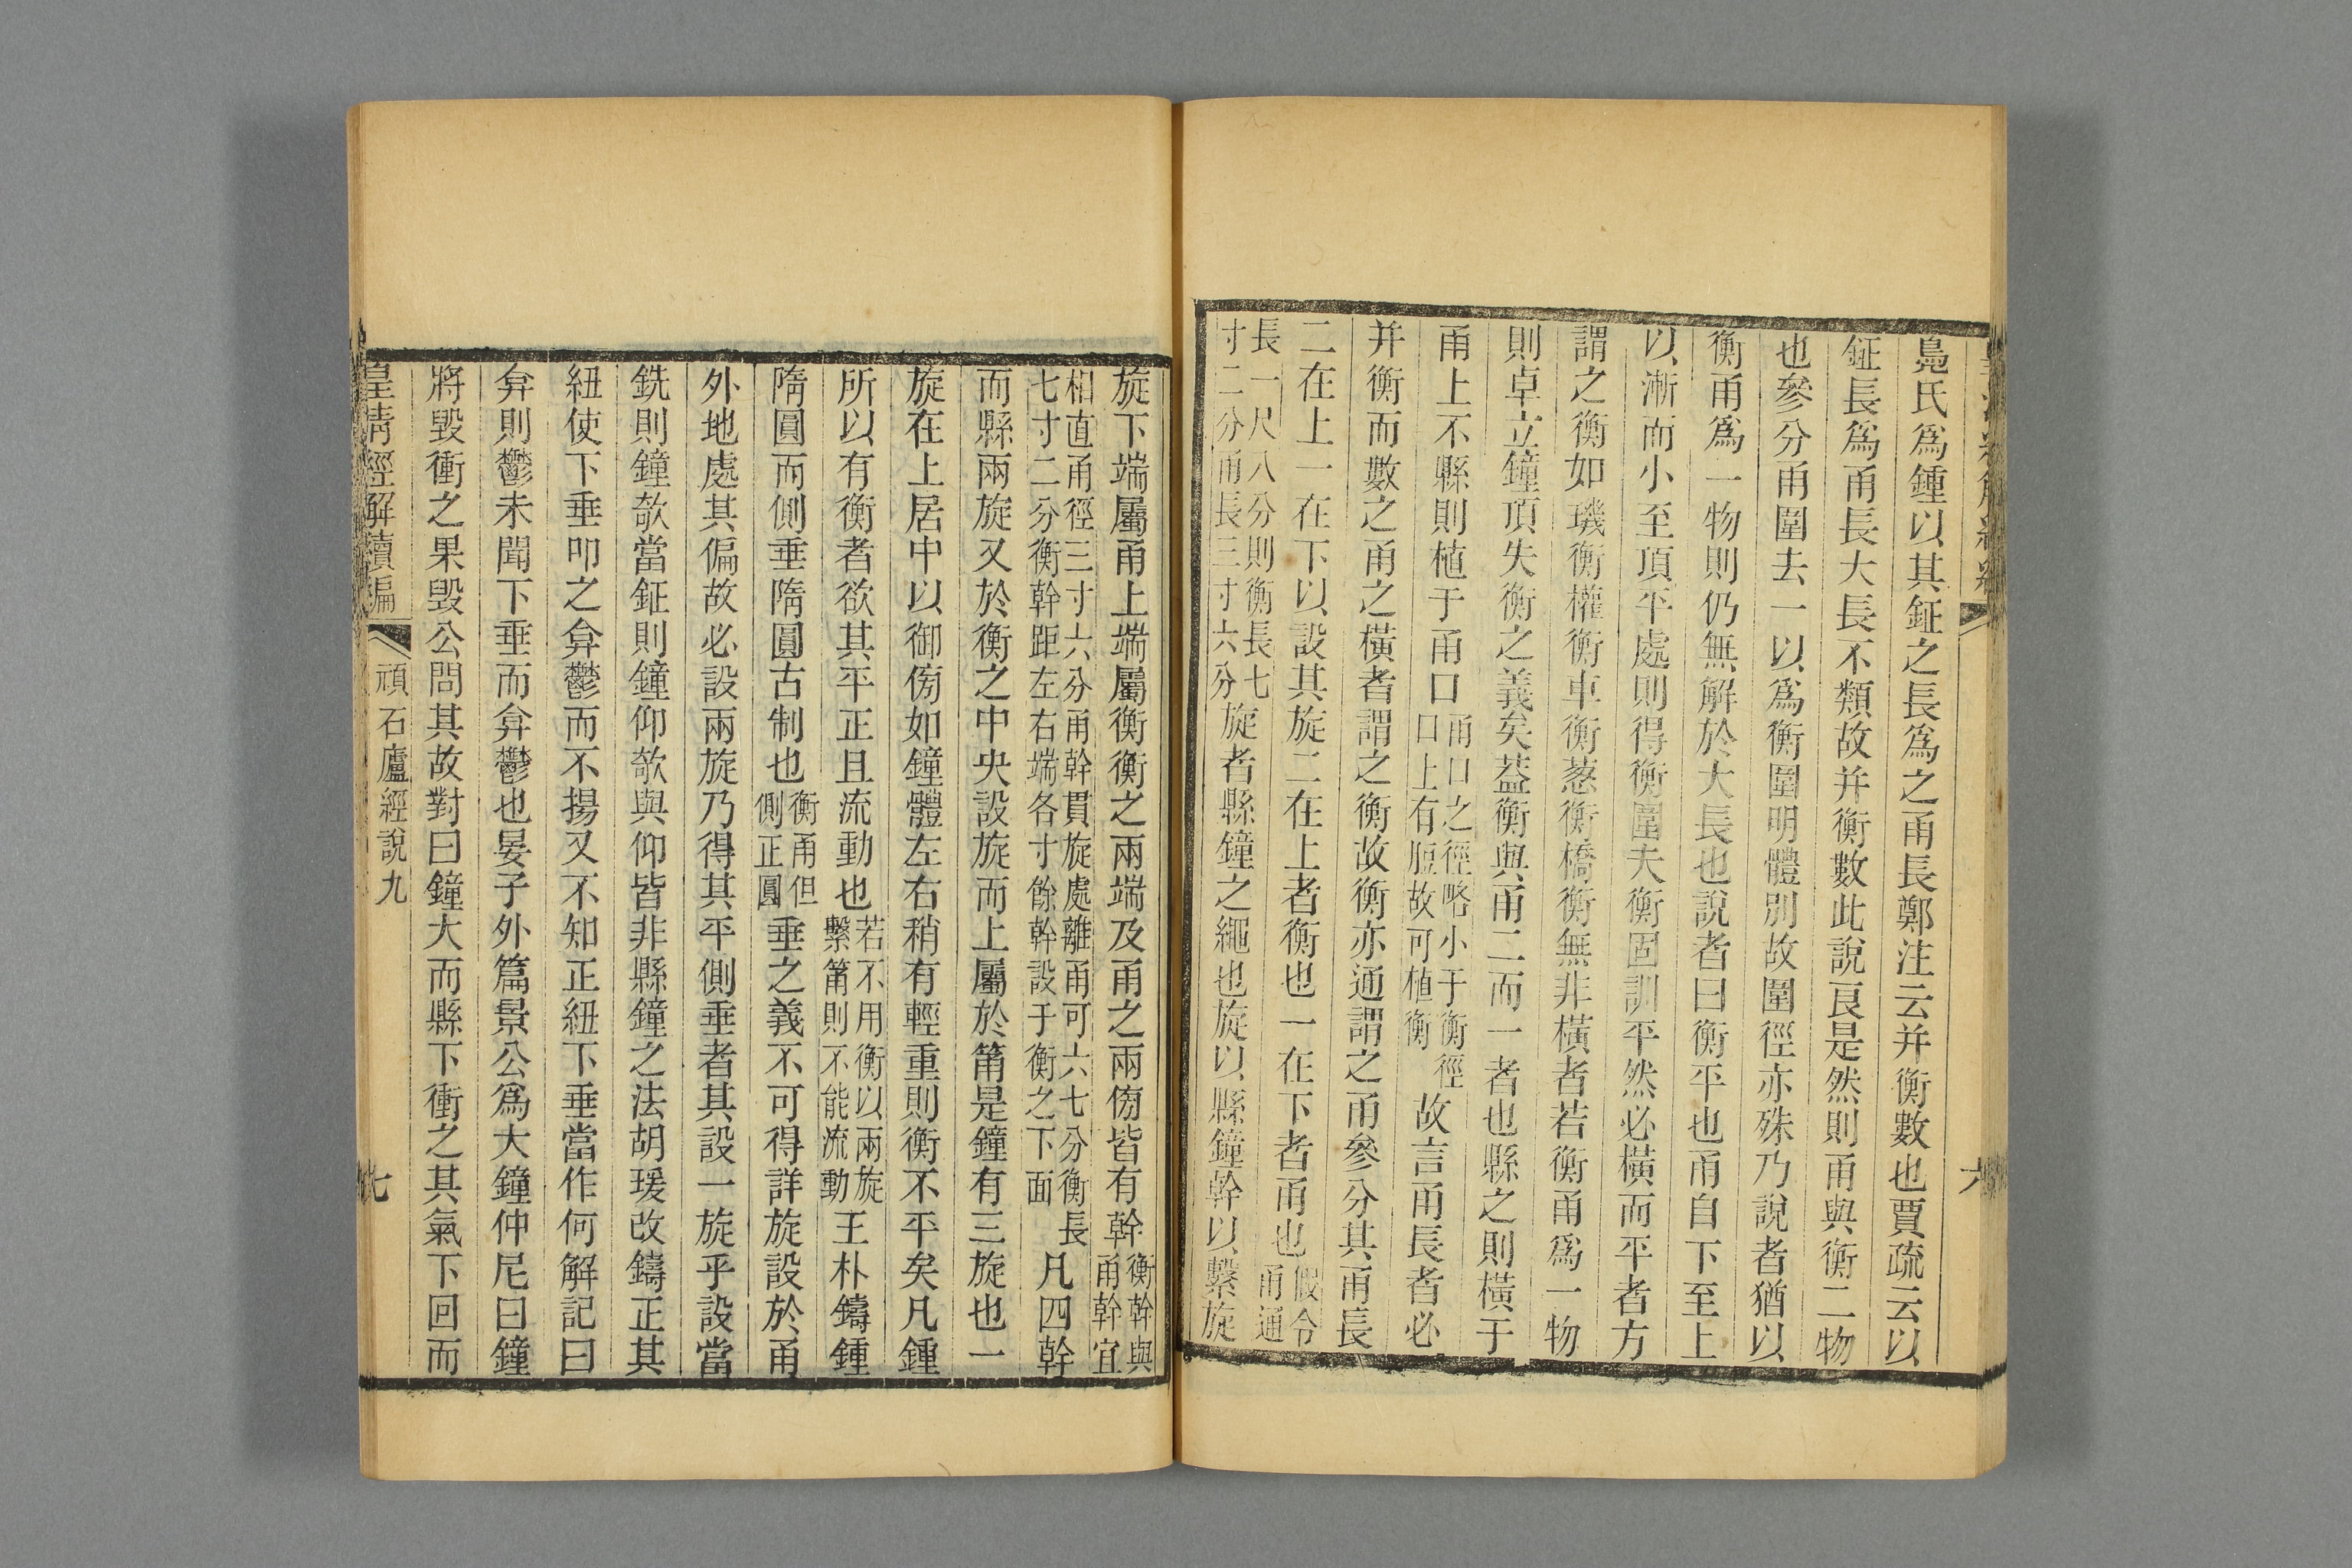 鳧氏爲鍾以其鉦之長爲之甬長鄭注云并衡數也賈疏云以
鉦長爲甬長大長不類故并衡數此說良是然則甬與衡二物
也參分甬圍去一以爲衡圍明體別故圍徑亦殊乃說者猶以
衡甬爲一物則仍無解於大長也說者曰衡平也甬自下至上
以漸而小至頂平處則得衡圍夫衡固訓平然必橫而平者方
謂之衡如璣衡權衡車衡蔥衡橋衡無非橫者若衡甬爲一物
則卓立鐘頂失衡之義矣葢衡與甬二而一者也縣之則橫于
甬上不縣則植于甬口甬口之徑略小于衡徑口上有𨫼故可植衡故言甬長者必
并衡而數之甬之橫者謂之衡故衡亦通謂之甬參分其甬長
二在上一在下以設其旋二在上者衡也一在下者甬也假令甬通
長一尺八分則衡長七寸二分甬長三寸六分旋者縣鐘之繩也旋以縣鐘幹以繫旋
六
旋下端屬甬上端屬衡衡之兩端及甬之兩傍皆有幹衡幹與甬幹宜
相直甬徑三寸六分甬幹貫旋處離甬可六七分衡長七寸二分衡幹距左右端各寸餘幹設于衡之下面凡四幹
而縣兩旋又於衡之中央設旋而上屬於箾是鐘有三旋也一
旋在上居中以御傍如鐘體左右稍有輕重則衡不平矣凡鍾
所以有衡者欲其平正且流動也若不用衡以兩旋繫箾則不能流動王朴鑄鍾
隋圓而側垂隋圓古制也衡甬但側正圓垂之義不可得詳旋設於甬
外地處其偏故必設兩旋乃得其平側垂者其設一旋乎設當
銑則鐘欹當鉦則鐘仰欹與仰皆非縣鐘之法胡瑗改鑄正其
紐使下垂叩之弇鬱而不揚又不知正紐下垂當作何解記曰
弇則鬱未聞下垂而弇鬱也晏子外篇景公爲大鐘仲尼曰鐘
將毀衝之果毀公問其故對曰鐘大而縣下衝之其氣下回而
皇清經解續編
頑石廬經說九
七